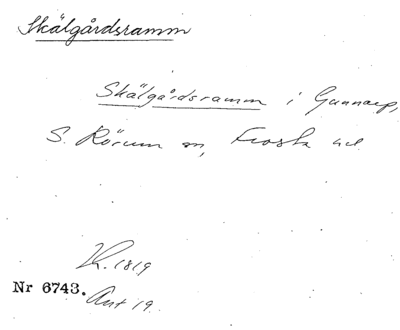 Skälgårdsramm
Skälgårdsramm i Gunnarp,
S. Rörum sn, Frosta hd.
Kh. 1819
Nr 6743. Ant 19.